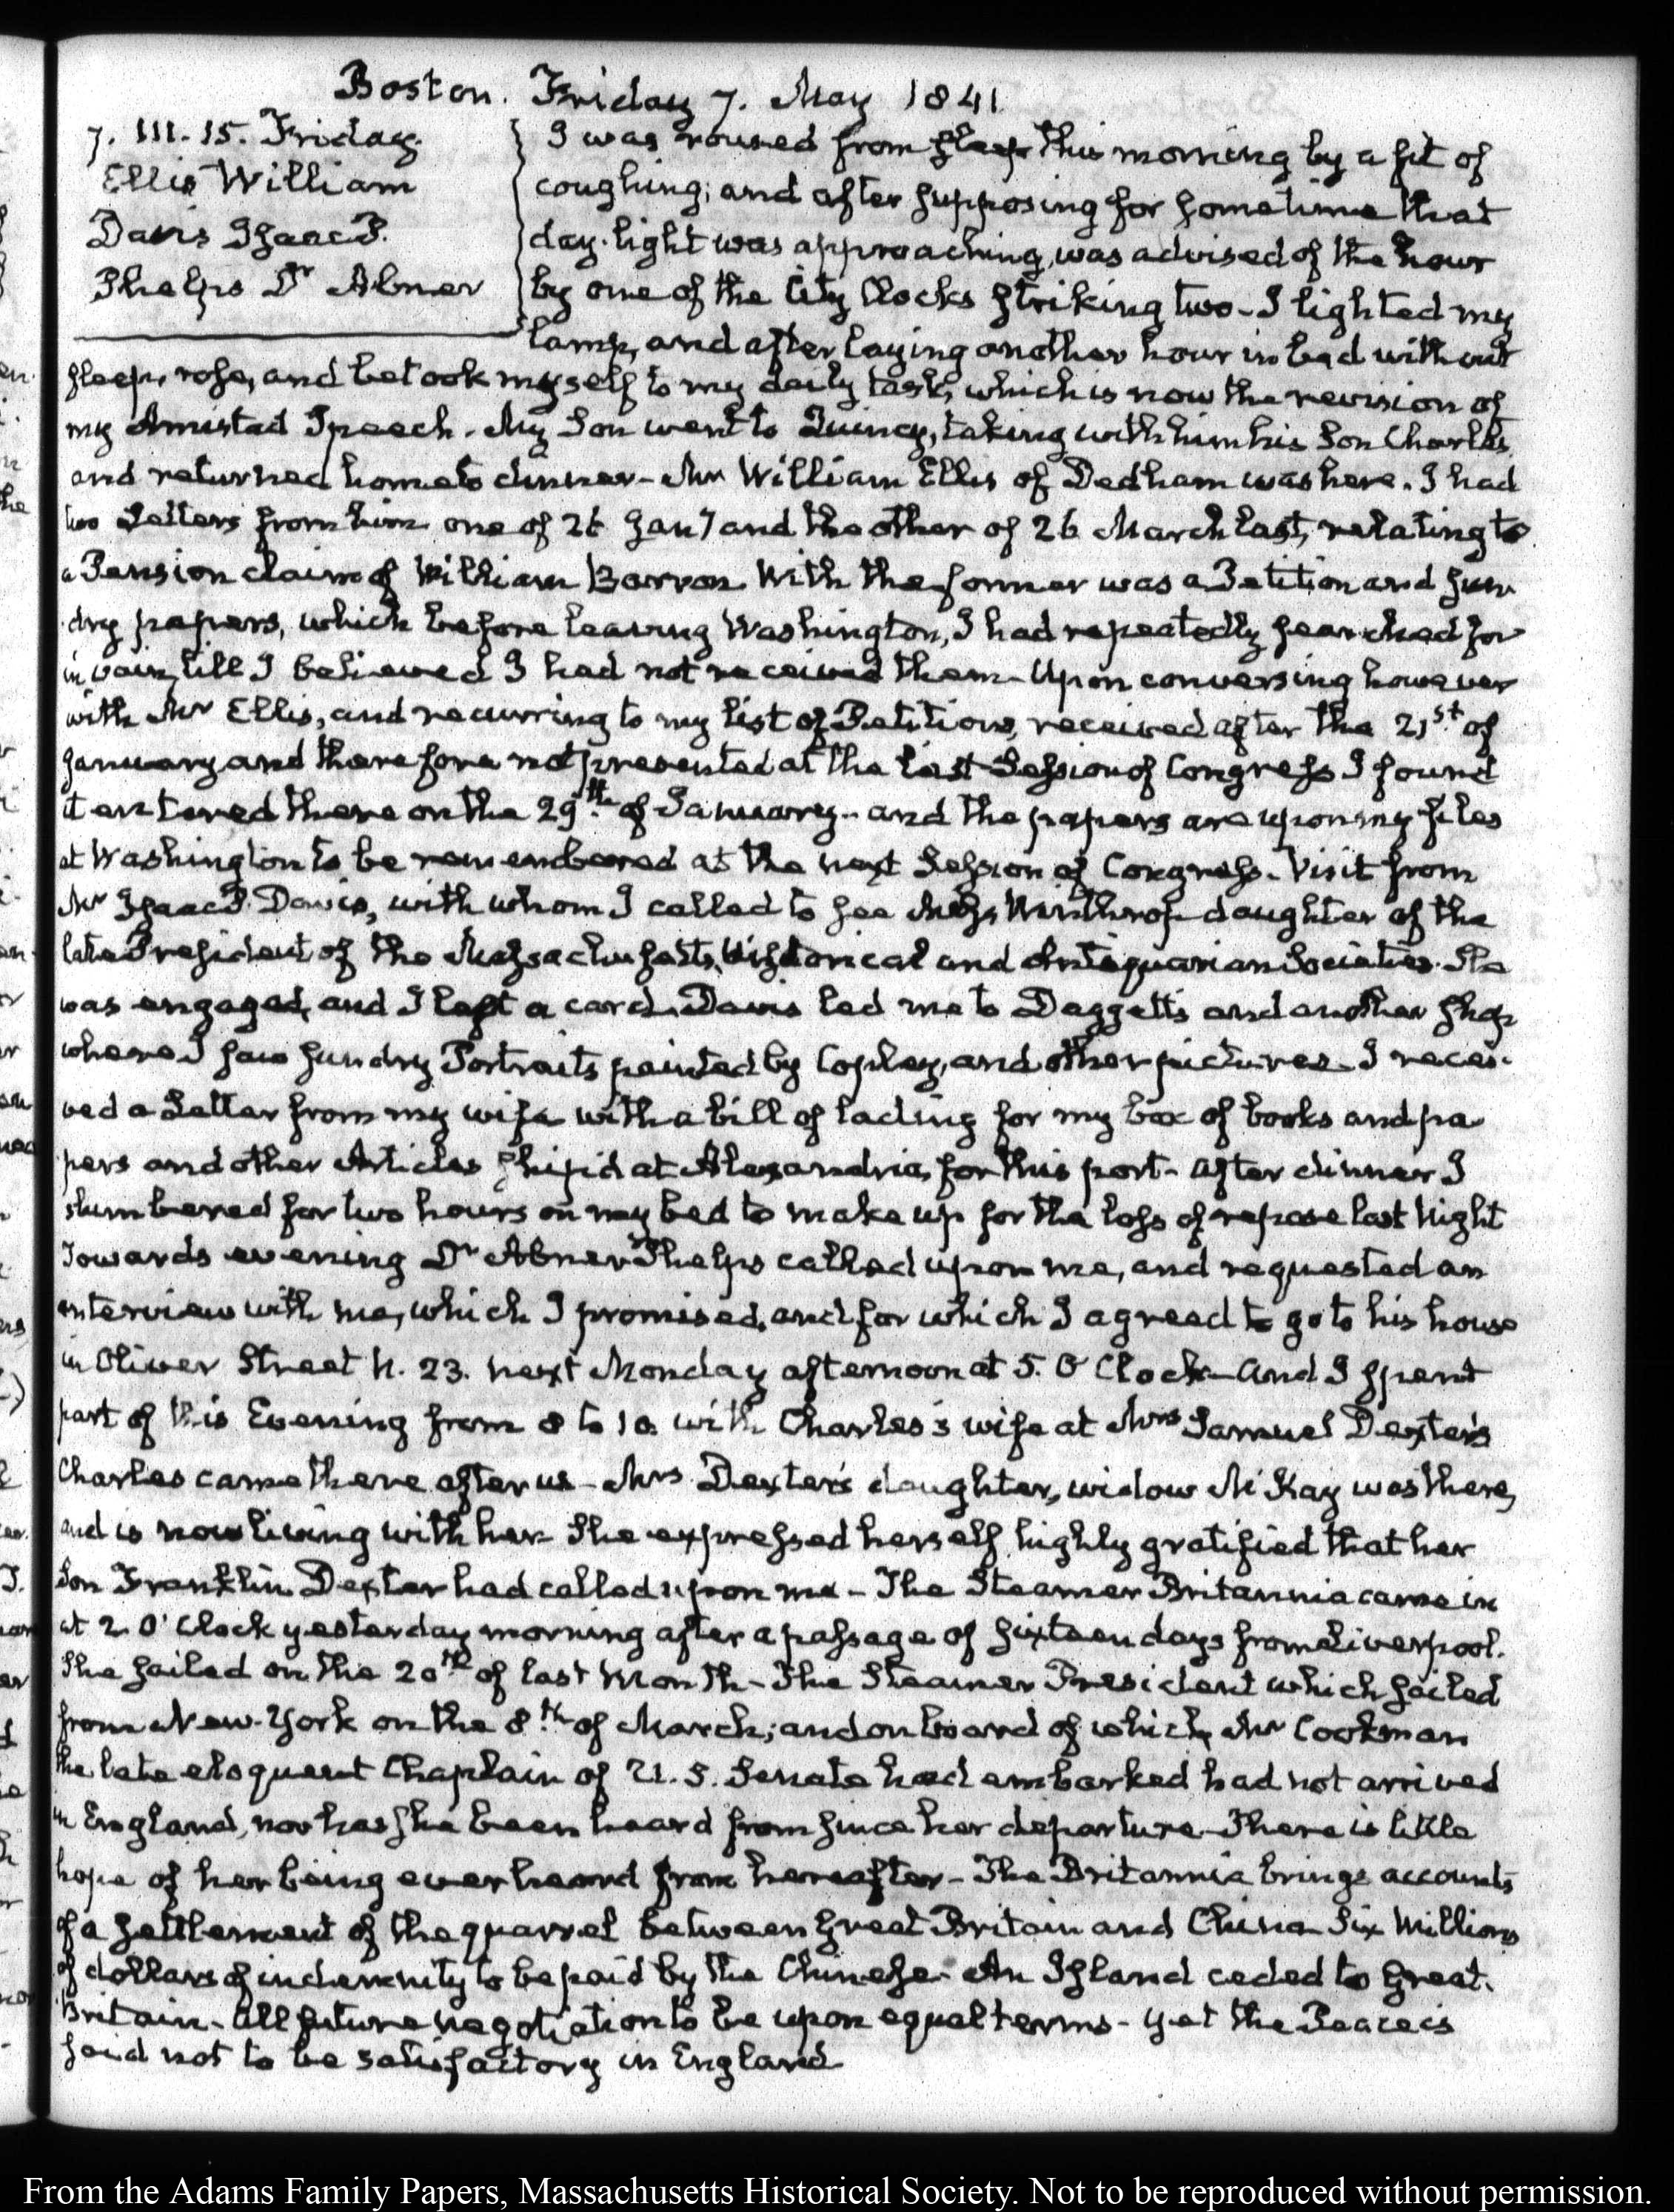 Boston. Friday 7. May 1841.
7. III. 15. Friday.
Ellis William
Davis Isaac P.
Phelps Dr Abner
I was roused from sleep this morning by a fit of
coughing; and after supposing for sometime that
day-light was approaching, was advised of the hour
by one of the City Clocks striking two - I lighted my
lamp, and after laying another hour in bed without
sleep, rose, and betook myself to my daily task, which is now the revision of
my Amistad Speech. My Son went to Quincy, taking with him his Son Charles,
and returned home to dinner - Mr William Ellis of Dedham was here. I had
two Letters from him one of 26 Jany and the other of 26 March last, relating to
a Pension claim of William Barron With the former was a Petition and sun-
dry papers, which before leaving Washington, I had repeatedly searched for
in vain, till I believed I had not received them - Upon conversing however
with Mr Ellis, and recurring to my list of Petitions, received after the 21st of
January and therefore not presented at the last Session of Congress I found
it entered there on the 29th of January - and the papers are upon my files
at Washington to be remembered at the next Session of Congress - Visit from
Mr Isaac P. Davis, with whom I called to see Miss Winthrop daughter of the
late President of the Massachusetts, Historical and Antiquarian Societies. She
was engaged, and I left a card. Davis led me to Daggett's and another shop
where I saw sundry Portraits painted by Copley, and other pictures - I recei-
ved a Letter from my wife with a bill of lading for my box of books and pa-
pers and other Articles ship'd at Alexandria, for this port - After dinner I
slumbered for two hours on my bed to make up for the loss of repose last Night
Towards evening Dr Abner Phelps called upon me, and requested an
interview with me, which I promised, and for which I agreed to go to his house
in Oliver Street N. 23. next Monday afternoon at 5. O'Clock - And I spent
part of this Evening from 8 to 10 with Charles's wife at Mrs Samuel Dexter's
Charles came there after us - Mrs Dexter's daughter, widow McKay was there,
and is now living with her She expressed herself highly gratified that her
Son Franklin Dexter had called upon me - The Steamer Britannia came in
at 2 O'Clock yesterday morning after a passage of sixteen days from Liverpool.
She sailed on the 20th of last Month - The Steamer President which sailed
from New-York on the 8th of March; and on board of which, Mr Cookman
the late eloquent Chaplain of U.S. Senate had embarked had not arrived
in England, nor has she been heard from since her departure - There is little
hope of her being ever heard from hereafter - The Britannia brings accounts
of a settlement of the quarrel between Great Britain and China Six Millions
of dollars of indemnity to be paid by the Chinese - An Island ceded to Great-
Britain - All future negotiation to be upon equal terms - yet the Peace is
said not to be satisfactory in England
From the Adams Family Papers, Massachusetts Historical Society. Not to be reproduced without permission.